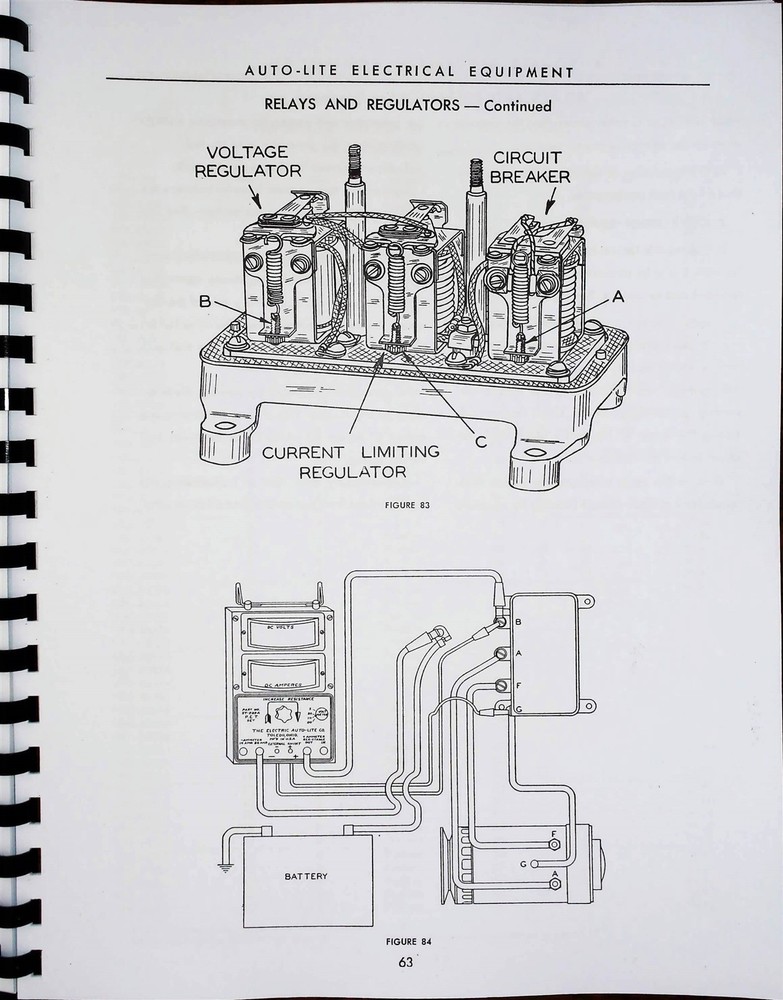 AUTO-LITE ELECTRICAL EQUIPMENT
RELAYS AND REGULATORS — Continued
VOLTAGE
REGULATOR
CIRCUIT
BREAKER
B
A
CURRENT LIMITING
REGULATOR
C
FIGURE 83
DC VOLTS
DC AMPERES
INCREASE RESISTANCE
PART NO.
SET
THE ELECTRIC AUTO-LITE CO.
TOLEDO, OHIO
MD'E IN U.S.A.
EXTERNAL SHUNT
- +
B
A
F
G
BATTERY
F
G
A
FIGURE 84
63